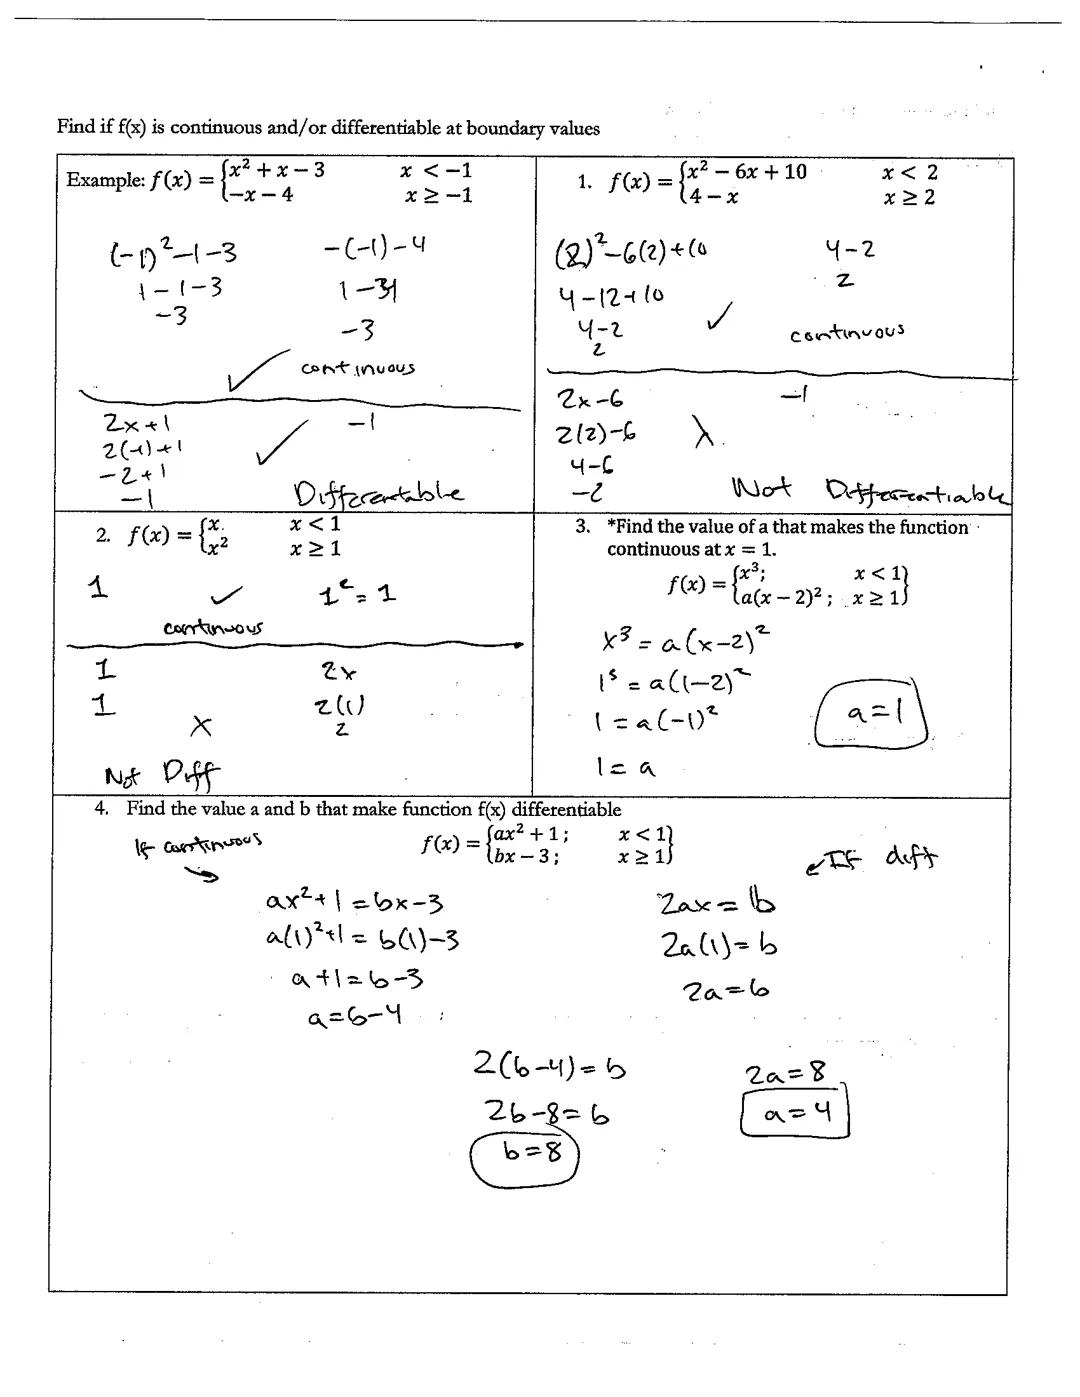 Find if f(x) is continuous and/or differentiable at boundary values
Example: f(x) = {x² + x − 3   x < −1
{−x − 4   x ≥ −1
(-1)²-1-3   -(-1)-4
1-1-3   1-4
-3   -3
✓ continuous
2x+1   -1
2(-1)+1 ✓
-2+1
-1   Differentable
1. f(x) = {x² − 6x + 10   x < 2
{4 − x   x ≥ 2
(2)²-6(2)+10   4-2
4-12+10   2
4-2 ✓ continuous
2
2x-6   -1
2(2)-6 X
4-6
-2   Not Differentiable
2. f(x) = {x   x < 1
{x²   x ≥ 1
1 ✓ 1² = 1
continuous
1   2x
1   2(1)
X   2
Not Diff
3. *Find the value of a that makes the function
continuous at x = 1.
f(x) = {x³;   x < 1}
{a(x − 2)²;   x ≥ 1}
x³ = a(x-2)²
1³ = a(1-2)²
1 = a(-1)²   a=1
1 = a
4. Find the value a and b that make function f(x) differentiable
f(x) = {ax² + 1;   x < 1}
{bx − 3;   x ≥ 1}
If continuous   If diff
ax²+1 = bx-3   2ax = b
a(1)²+1 = b(1)-3   2a(1) = b
a+1 = b-3   2a = b
a = b-4
2(b-4) = b   2a = 8
2b-8 = b   a = 4
b = 8